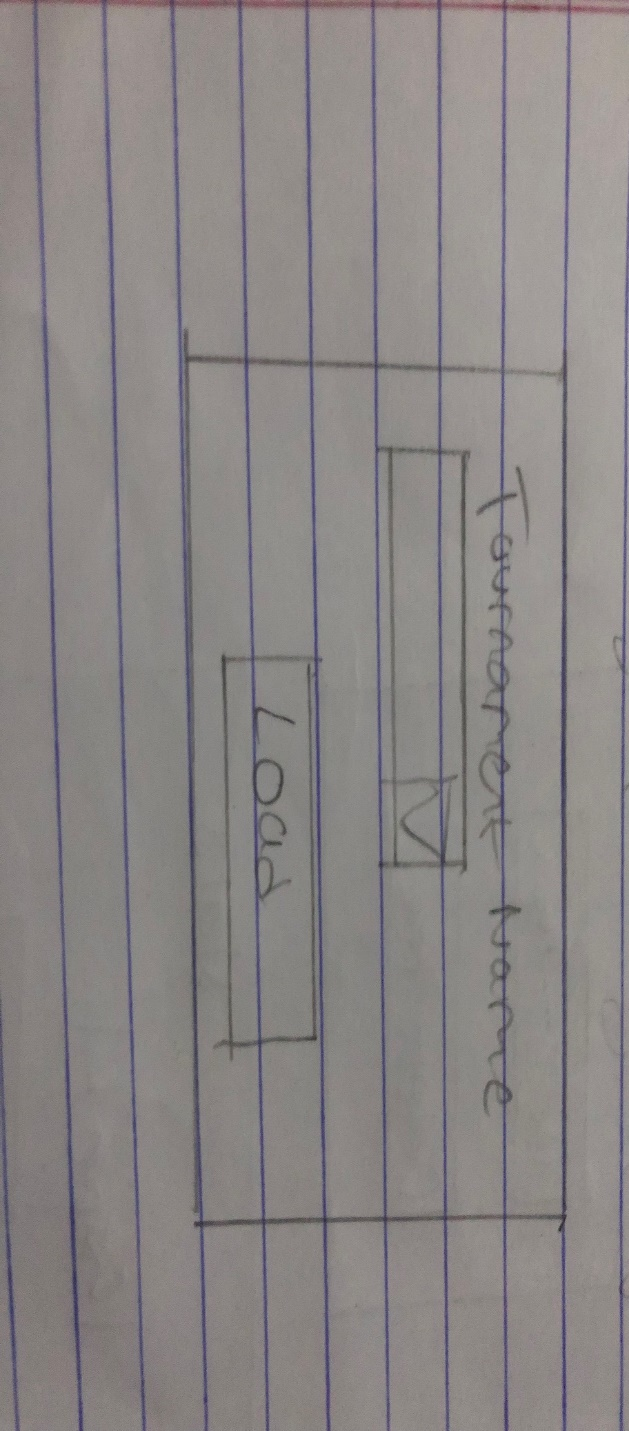 Tournament Name
Load